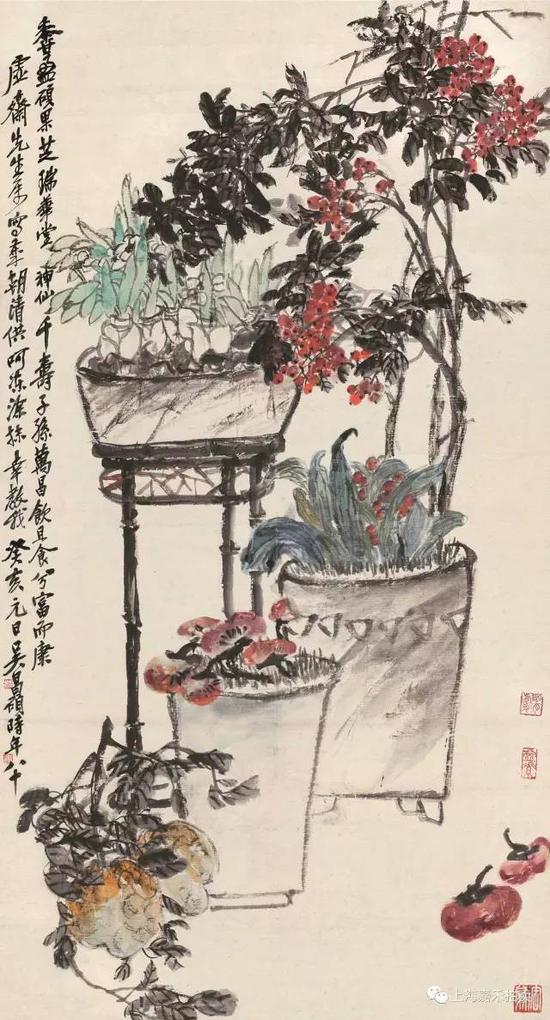 盈碩果芝瑞華堂神仙千壽子孫萬昌飲且食兮富而康
虛齋先生屬寫歲朝清供呵凍塗抹幸教我癸亥元日吳昌碩時年八十
上海嘉禾拍卖